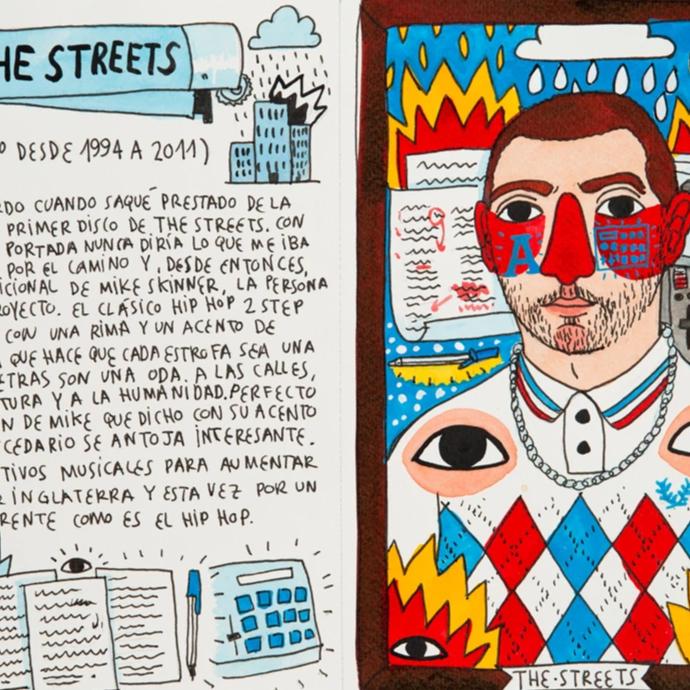 HE STREETS
O DESDE 1994 A 2011)
RDO CUANDO SAQUÉ PRESTADO DE LA
PRIMER DISCO DE THE STREETS. CON
PORTADA NUNCA DIRÍA LO QUE ME IBA
POR EL CAMINO Y, DESDE ENTONCES,
ICIONAL DE MIKE SKINNER, LA PERSONA
ROYECTO. EL CLÁSICO HIP HOP 2 STEP
CON UNA RIMA Y UN ACENTO DE
QUE HACE QUE CADA ESTROFA SEA UNA
ETRAS SON UNA ODA. A LAS CALLES,
TURA Y A LA HUMANIDAD. PERFECTO
N DE MIKE QUE DICHO CON SU ACENTO
CEDARIO SE ANTOJA INTERESANTE.
TIVOS MUSICALES PARA AUMENTAR
R INGLATERRA Y ESTA VEZ POR UN
RENTE COMO ES EL HIP HOP.
A
THE·STREETS